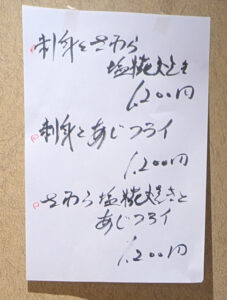 刺身とさわら
塩焼き
1,200円
刺身とあじフライ
1,200円
さわら塩焼きと
あじフライ
1,200円